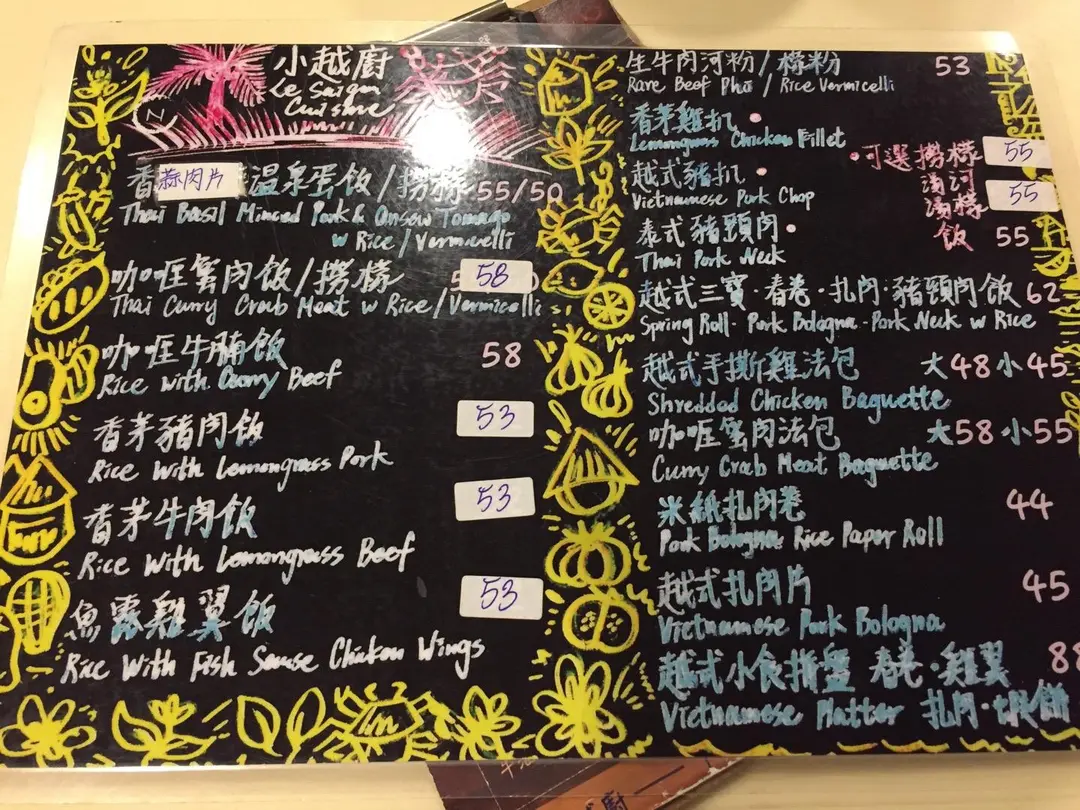 小越廚
Le Saigon
Cuisine
香蒜肉片溫泉蛋飯/撈檬 55/50
Thai Basil Minced Pork & Onsew Tomago
w Rice/Vermicelli
咖喱蟹肉飯/撈檬 58
Thai Curry Crab Meat w Rice/Vermicelli
咖喱牛腩飯 58
Rice with Curry Beef
香茅豬肉飯 53
Rice With Lemongrass Pork
香茅牛肉飯 53
Rice With Lemongrass Beef
魚露雞翼飯 53
Rice With Fish Sause Chicken Wings
生牛肉河粉/檬粉 53
Rare Beef Pho / Rice Vermicelli
香茅雞扒
Lemongrass Chicken Fillet
•可選撈檬 55
越式豬扒
湯河
Vietnamese Pork Chop
湯檬 55
泰式豬頸肉
飯 55
Thai Pork Neck
越式三寶·春卷·扎肉·豬頸肉飯 62
Spring Roll· Pork Bologna· Pork Neck w Rice
越式手撕雞法包 大48小45
Shredded Chicken Baguette
咖喱蟹肉法包 大58小55
Curry Crab Meat Baguette
米紙扎肉卷 44
Pork Bologna Rice Paper Roll
越式扎肉片 45
Vietnamese Pork Bologna
越式小食拼盤 春卷·雞翼 88
Vietnamese Platter 扎肉·蝦餅